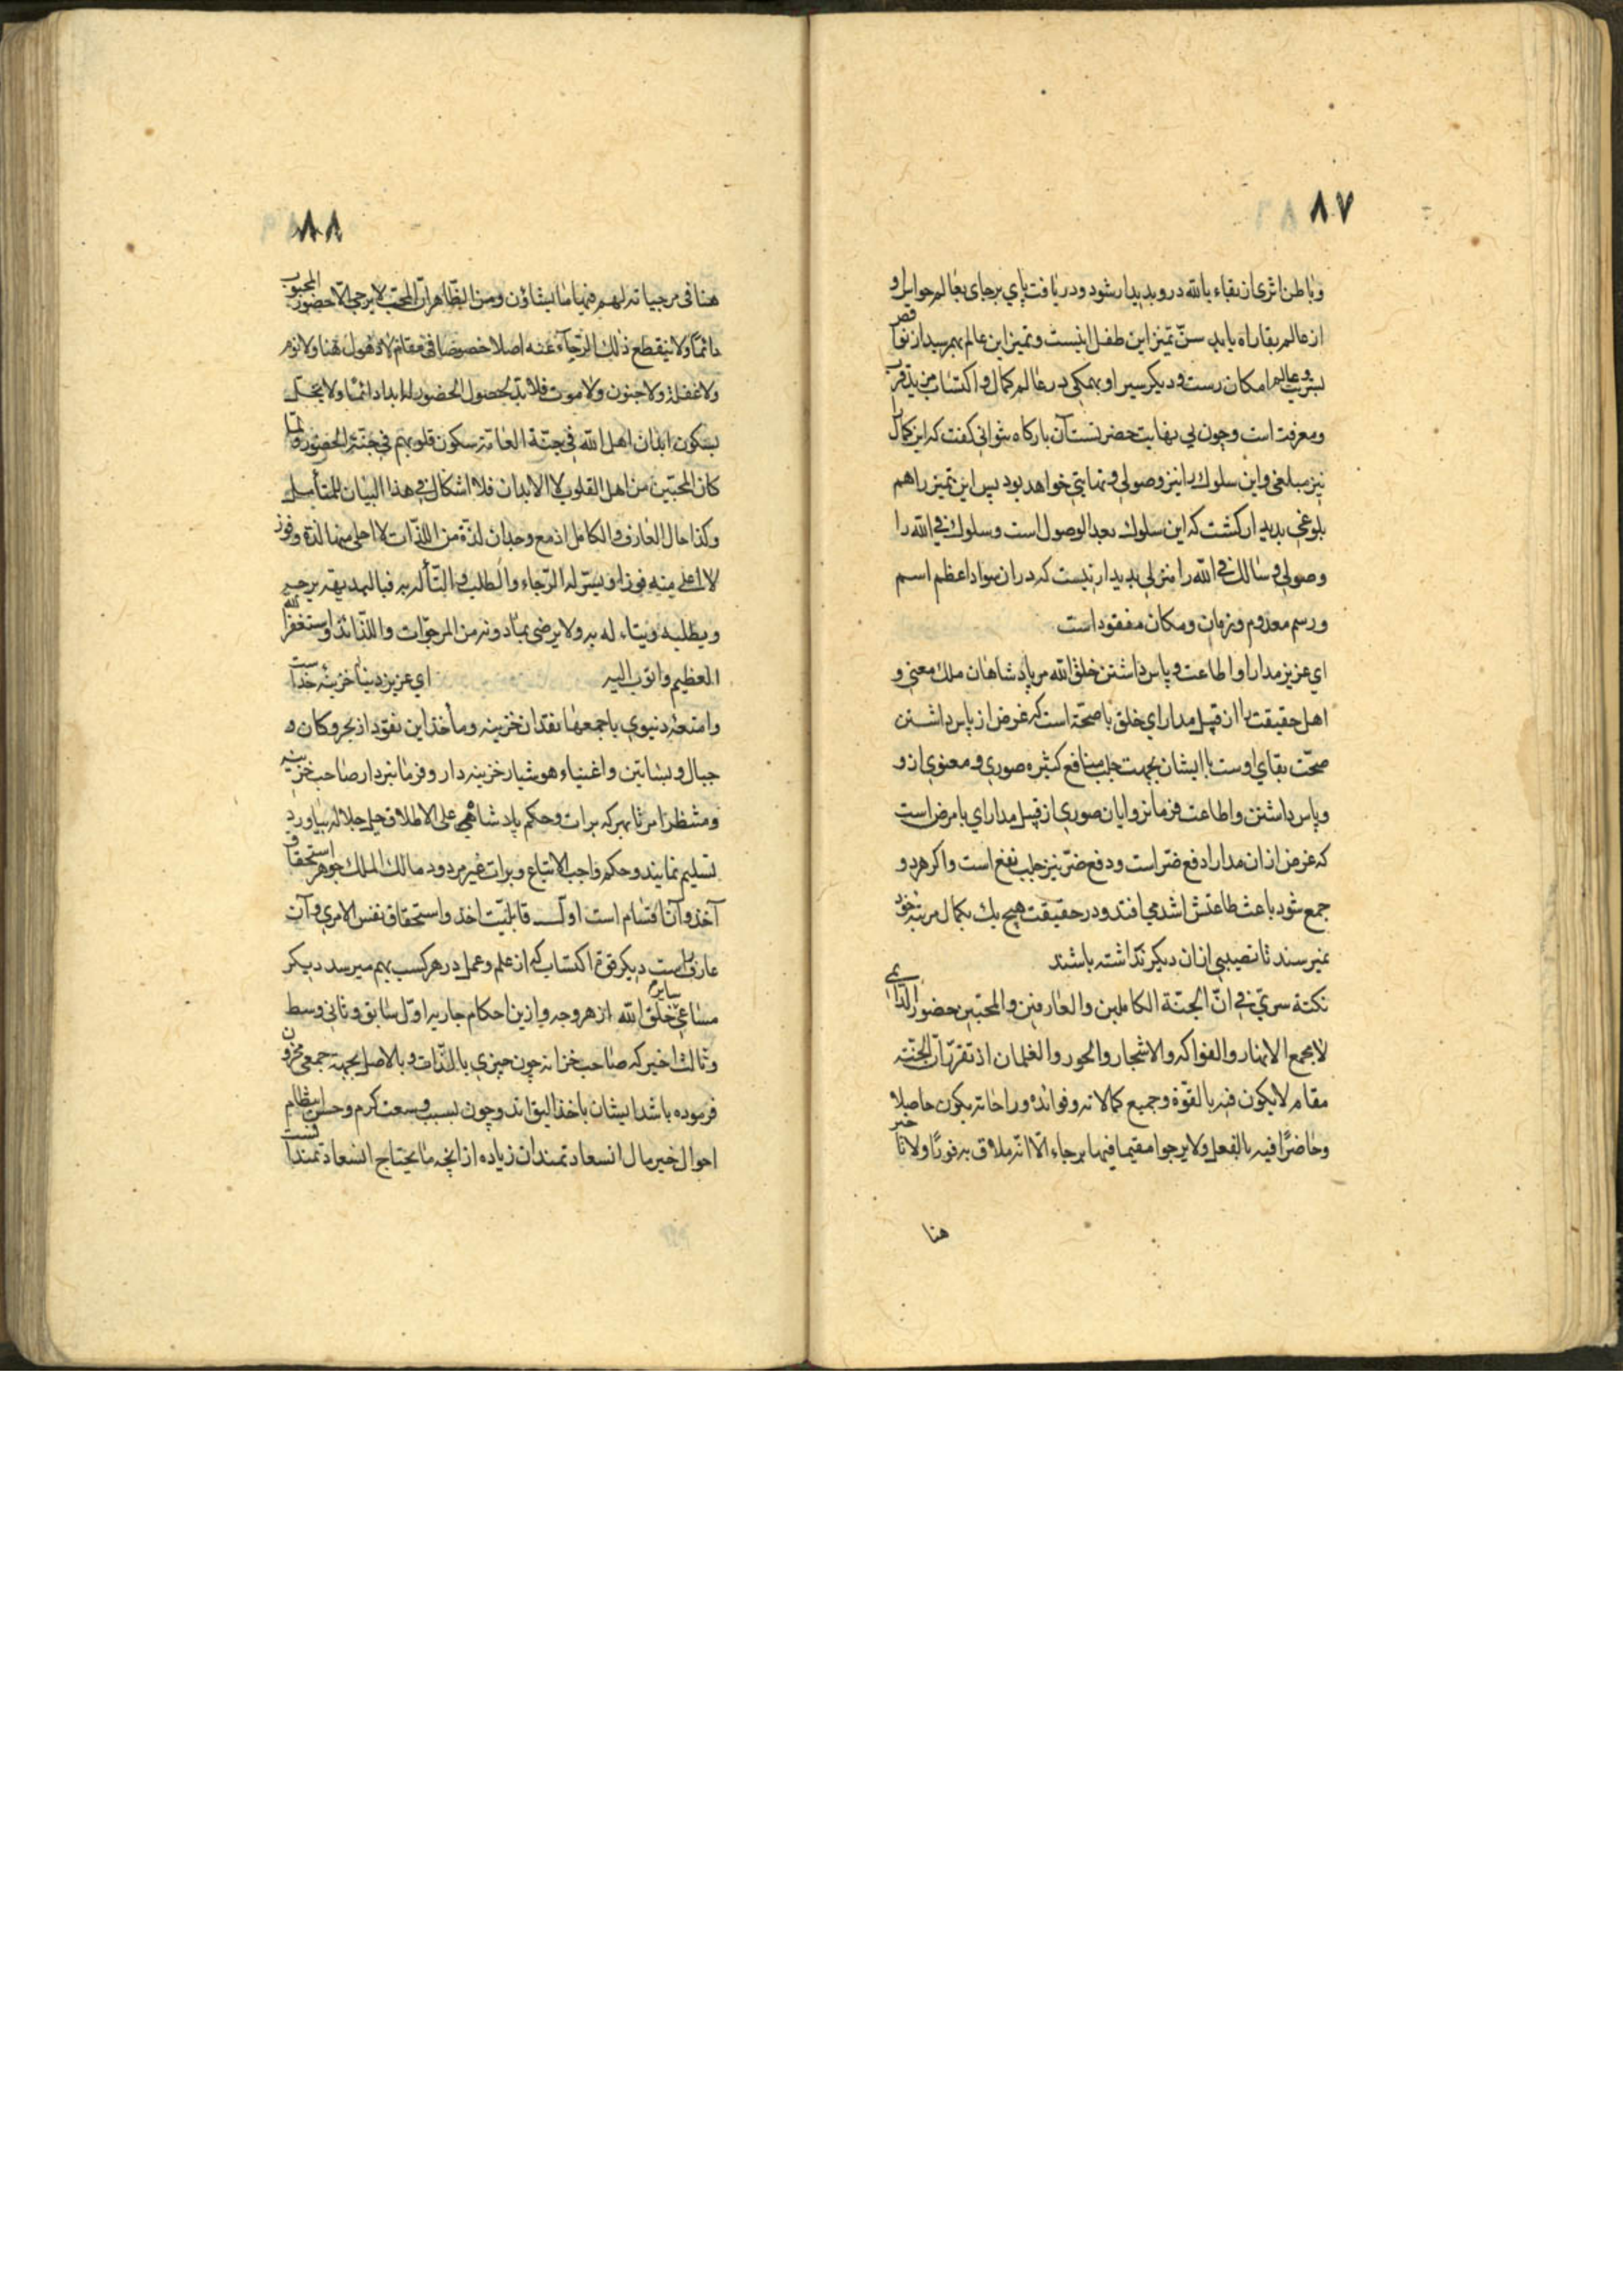 ۸۷
وباطن اثری از بقاء بالله درو پدیدار شود ودریافت پای برجای بعالم حواس او
از عالم بقا راه یابد سنّ تمیز این طفل اینست وتمیز این عالم بهم رسید از نواقص
بشریت وعالم امکان رست ودیکر سیر او بهمکی در عالم کمال واکتساب مزید قرب
ومعرفت است وچون بی نهایت حضرتست آن بارکاه نتوانی کفت که این کمال را
نیز مبلغی واین سلوک را نیز وصولی ونهایتی خواهد بود پس این تمیز را هم
بلوغی پدیدار کشت که این سلوک بعد الوصول است وسلوک فی الله را
وصولی وسالک فی الله را منزلی پدیدار نیست که در ان سواد اعظم اسم
ورسم معدوم وزمان ومکان مفقود است
ای عزیز مدارا واطاعت وپاس داشتن خلق الله مر پادشاهان ملک معنی و
اهل حقیقت را از قبیل مدارای خلق با صحّت است که غرض از پاس داشتن
صحّت بقای اوست با ایشان بجهت جلب منافع کثیره صوری ومعنوی ازو
وپاس داشتن واطاعت فرمانروایان صوری از قبیل مدارای با مرض است
که غرض از ان مدارا دفع ضر است ودفع ضرّ نیز جلب نفع است واکر هر دو
جمع شود باعث طاعتش اشد می افتد ودر حقیقت هیچ یک بکمال مرتبه خود
نمیرسند تا نصیبی از ان دیکر نداشته باشند
نکتة سریّ فی انّ الجنّة الکاملین والعارفین والمحبّین حضور الدائمی
لا بجمع الانهار والفواکه والاشجار والحور والغلمان اذ تقرّر انّ الجنّة
مقام لا یکون فیه بالقوّة وجمیع کمالاته وفوائده وراحاته یکون حاصلا
وحاضرًا فیه بالفعل ولا یرجوا مقیما فیها برجاء الّا انّه ملاق به فورًا ولا تأخیر
هنا
۸۸
هنا فی مرجیاته لهم فیها ما یشاؤن ومن الظّاهر انّ المحبّ لا یرجی الّا حضور المحبوب
دائمًا ولا ینقطع ذلک الرّجاء عنه اصلا خصوصا فی مقام لا ذهول هنا ولا نوم
ولا غفلة ولا جنون ولا موت فلا بدّ بحصول الحضور له ابدا دائمًا ولا یختل
بسکون ابدان اهل الله فی جنّة العامّة سکون قلوبهم فی جنّة الحضور ولمّا
کان المحبّین من اهل القلوب لا الابدان فلا اشکال فی هذا البیان للمتأمل
وکذا حال العارف والکامل اذ مع وجدان لذّة من اللذّات لا احلی منها لذة وفوز
لا اعلی منه فوزا ویسّر له الرّجاء والطلب والتألّه به فبالبدیهة یرجیه
ویطلبه ویتاله به ولا یرضی بما دونه من المرجوّات واللّذائذ واستغفر الله
العظیم واتوب الیه ای عزیز دنیا خزینهٔ خداست
وامتعهٔ دنیوی باجمعها نقدان خزینه ومأخذ این نقود از بحر وکان و
جبال وبساتین واغنیاء هوشیار خزینه دار وفرمانبردار صاحب خزینه
ومنتظر امر تا هر که برات وحکم پادشاهی علی الاطلاق جل جلاله بیاورد
تسلیم نمایند وحکم واجب الاتباع وبرات غیر مردود مالک الملک جوهر استحقاق
آخذ وآن اقسام است اوّل قابلیّت اخذ واستحقاق نفس الامری وآن
عارف راست دیکر قوّه اکتساب که از علم وعمل در هر کسب بهم میرسد دیکر
مساعی سایر خلق الله از هر وجه وازین احکام جاریه اوّل سابق وثانی وسط
وثالث اخیر که صاحب خزانه چون چیزی بالذّات وبالاصل بجهة جمعی مخزون
فرموده باشد ایشان باخذ الیق اند وچون بسبب وسعت کرم وحسن انتظام
احوال خیر مال انسعادتمندان زیاده از انچه ما یحتاج انسعادتمندانست